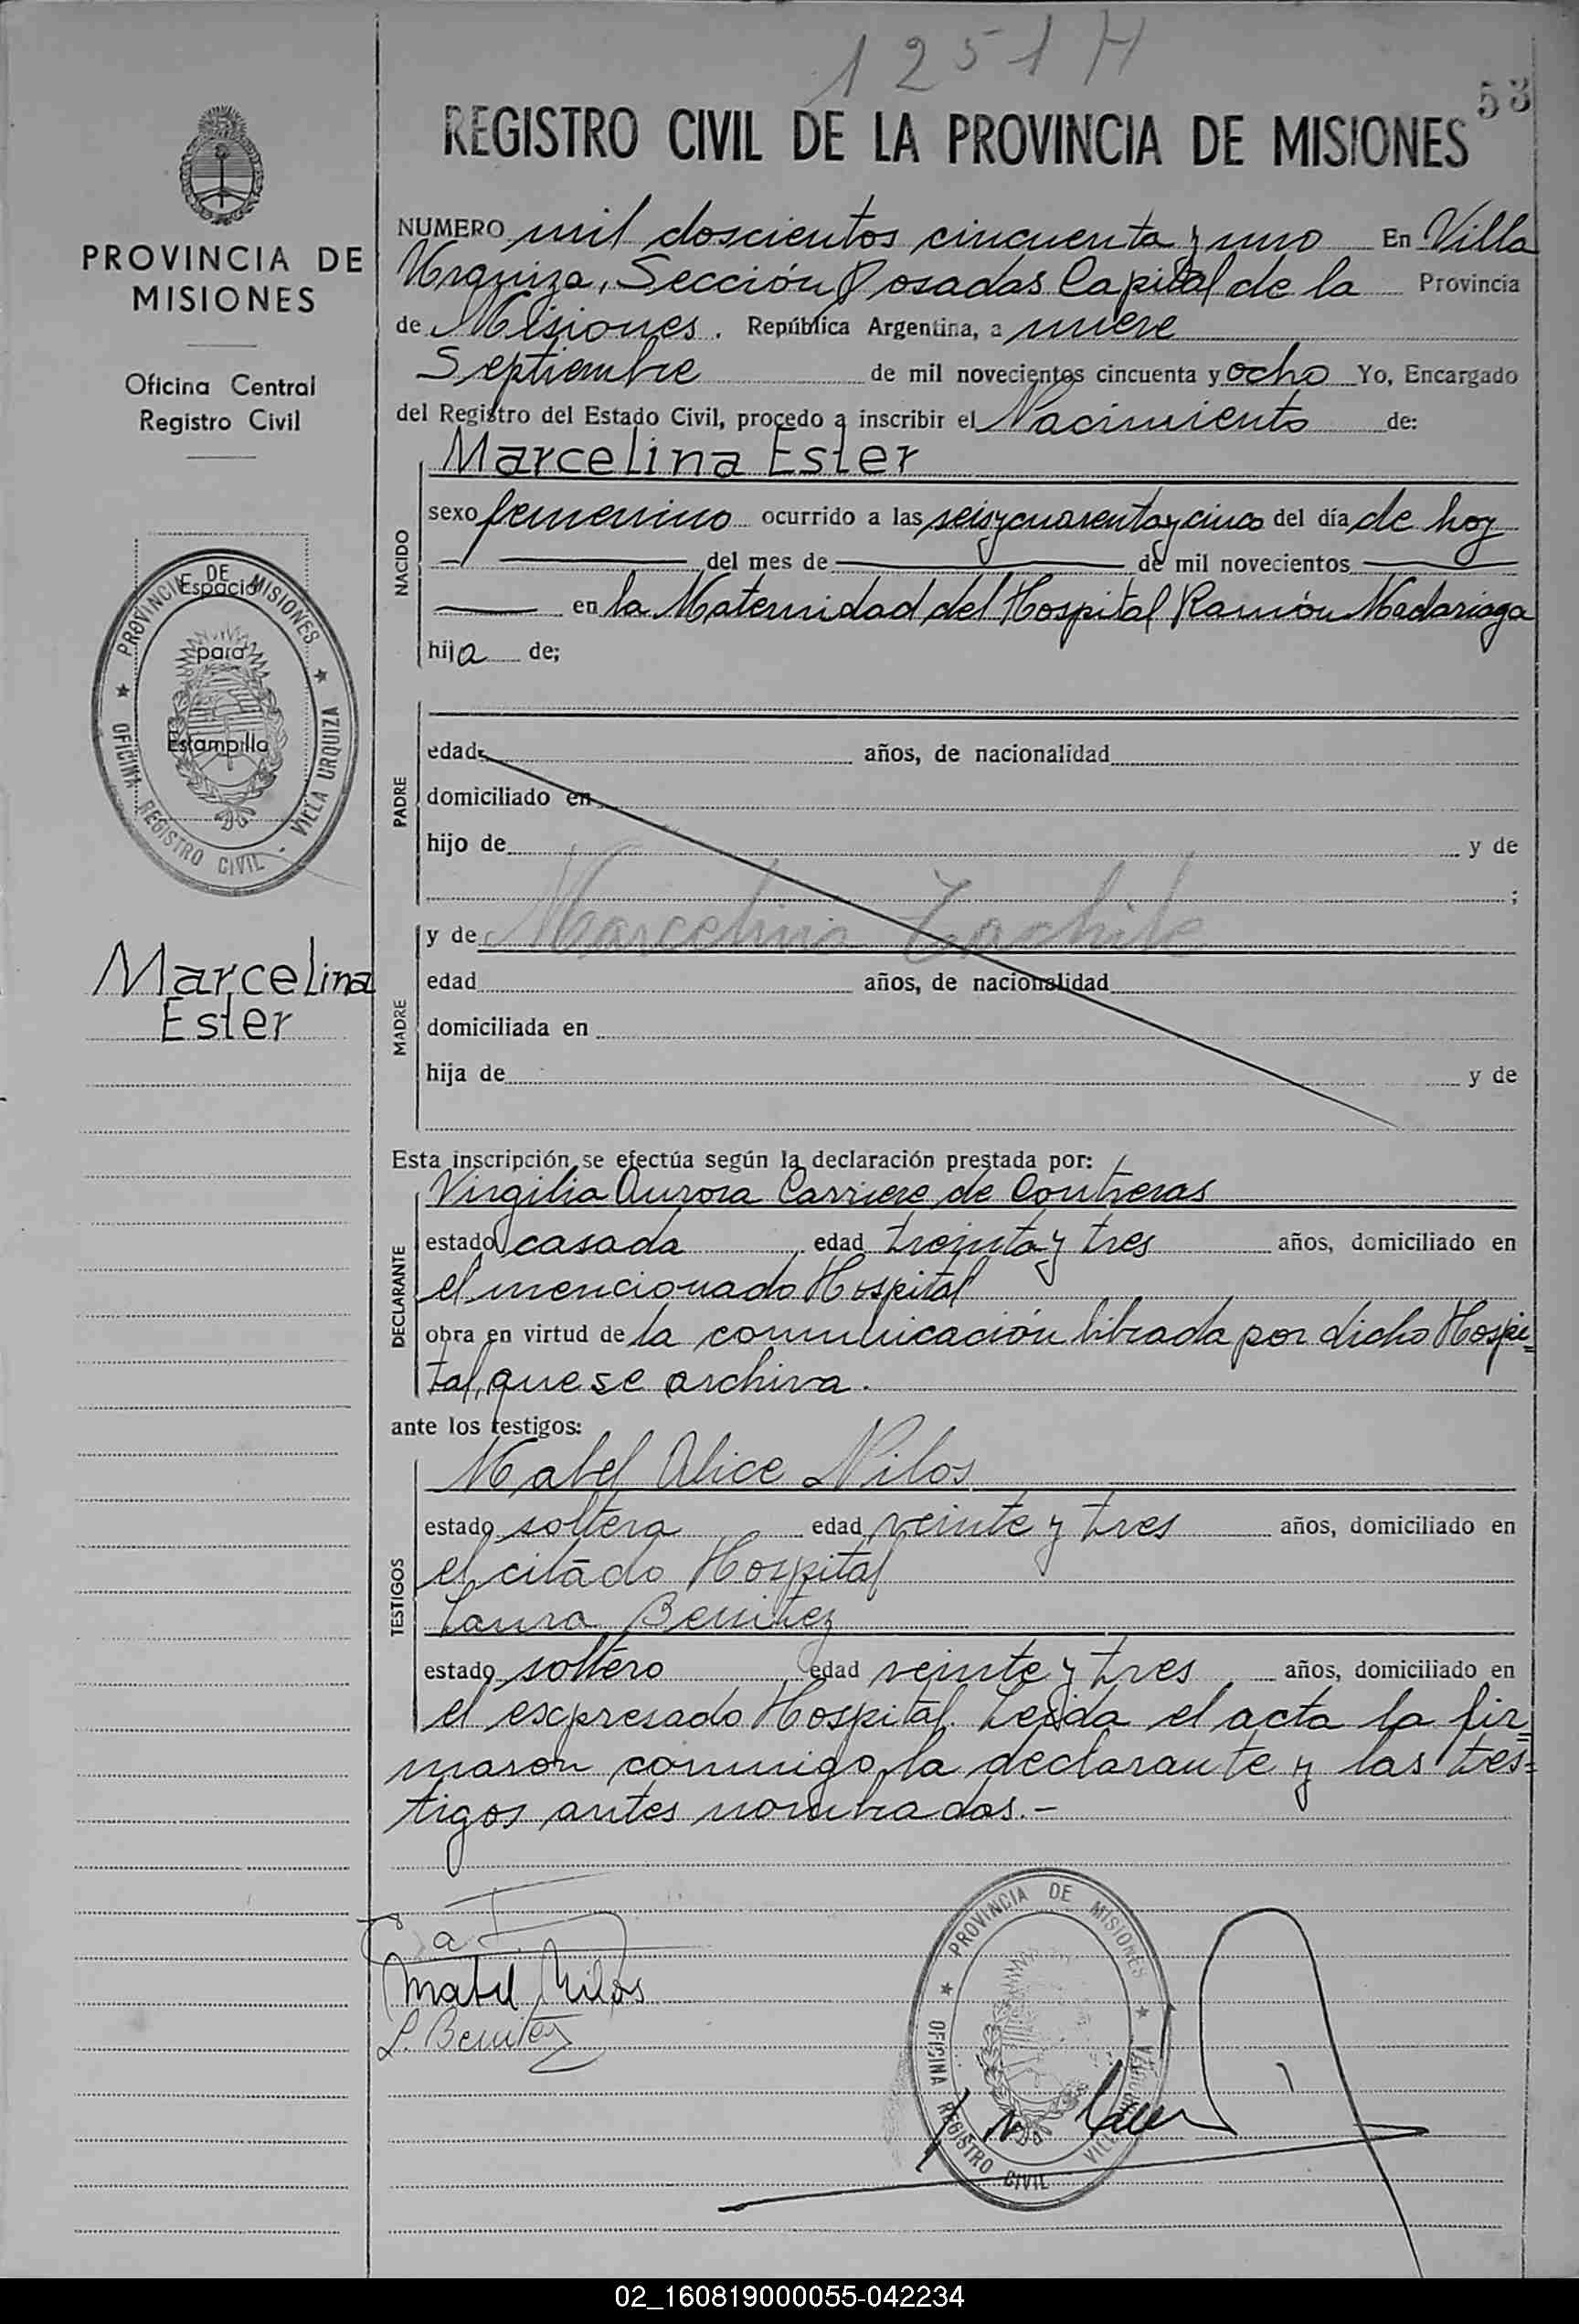 1251 H
53
REGISTRO CIVIL DE LA PROVINCIA DE MISIONES
PROVINCIA DE
MISIONES
Oficina Central
Registro Civil
PROVINCIA DE MISIONES
Espacio
para
Estampilla
OFICINA REGISTRO CIVIL - VILLA URQUIZA
Marcelina
Ester
NUMERO mil doscientos cincuenta y uno En Villa
Urquiza, Sección Posadas Capital de la Provincia
de Misiones. República Argentina, a nueve
Septiembre de mil novecientos cincuenta y ocho Yo, Encargado
del Registro del Estado Civil, procedo a inscribir el Nacimiento de:
NACIDO
Marcelina Ester
sexo femenino ocurrido a las seis y cuarenta y cinco del día de hoy
del mes de de mil novecientos
en la Maternidad del Hospital Ramón Madariaga
hija de;
PADRE
edad años, de nacionalidad
domiciliado en
hijo de y de
;
MADRE
y de Marcelina
edad años, de nacionalidad
domiciliada en
hija de y de
Esta inscripción se efectúa según la declaración prestada por:
DECLARANTE
Virgilia Aurora Carriere de Contreras
estado casada edad treinta y tres años, domiciliado en
el mencionado Hospital
obra en virtud de la comunicación librada por dicho Hospi=
tal, que se archiva.
ante los testigos:
TESTIGOS
Mabel Alice Nilos
estado soltera edad veinte y tres años, domiciliado en
el citado Hospital
Laura Benitez
estado soltero edad veinte y tres años, domiciliado en
el expresado Hospital. Leida el acta la fir=
maron conmigo la declarante y las tes=
tigos antes nombradas.-
Mabel Nilos
L. Benitez
PROVINCIA DE MISIONES
OFICINA REGISTRO CIVIL VILLA URQUIZA
02_160819000055-042234